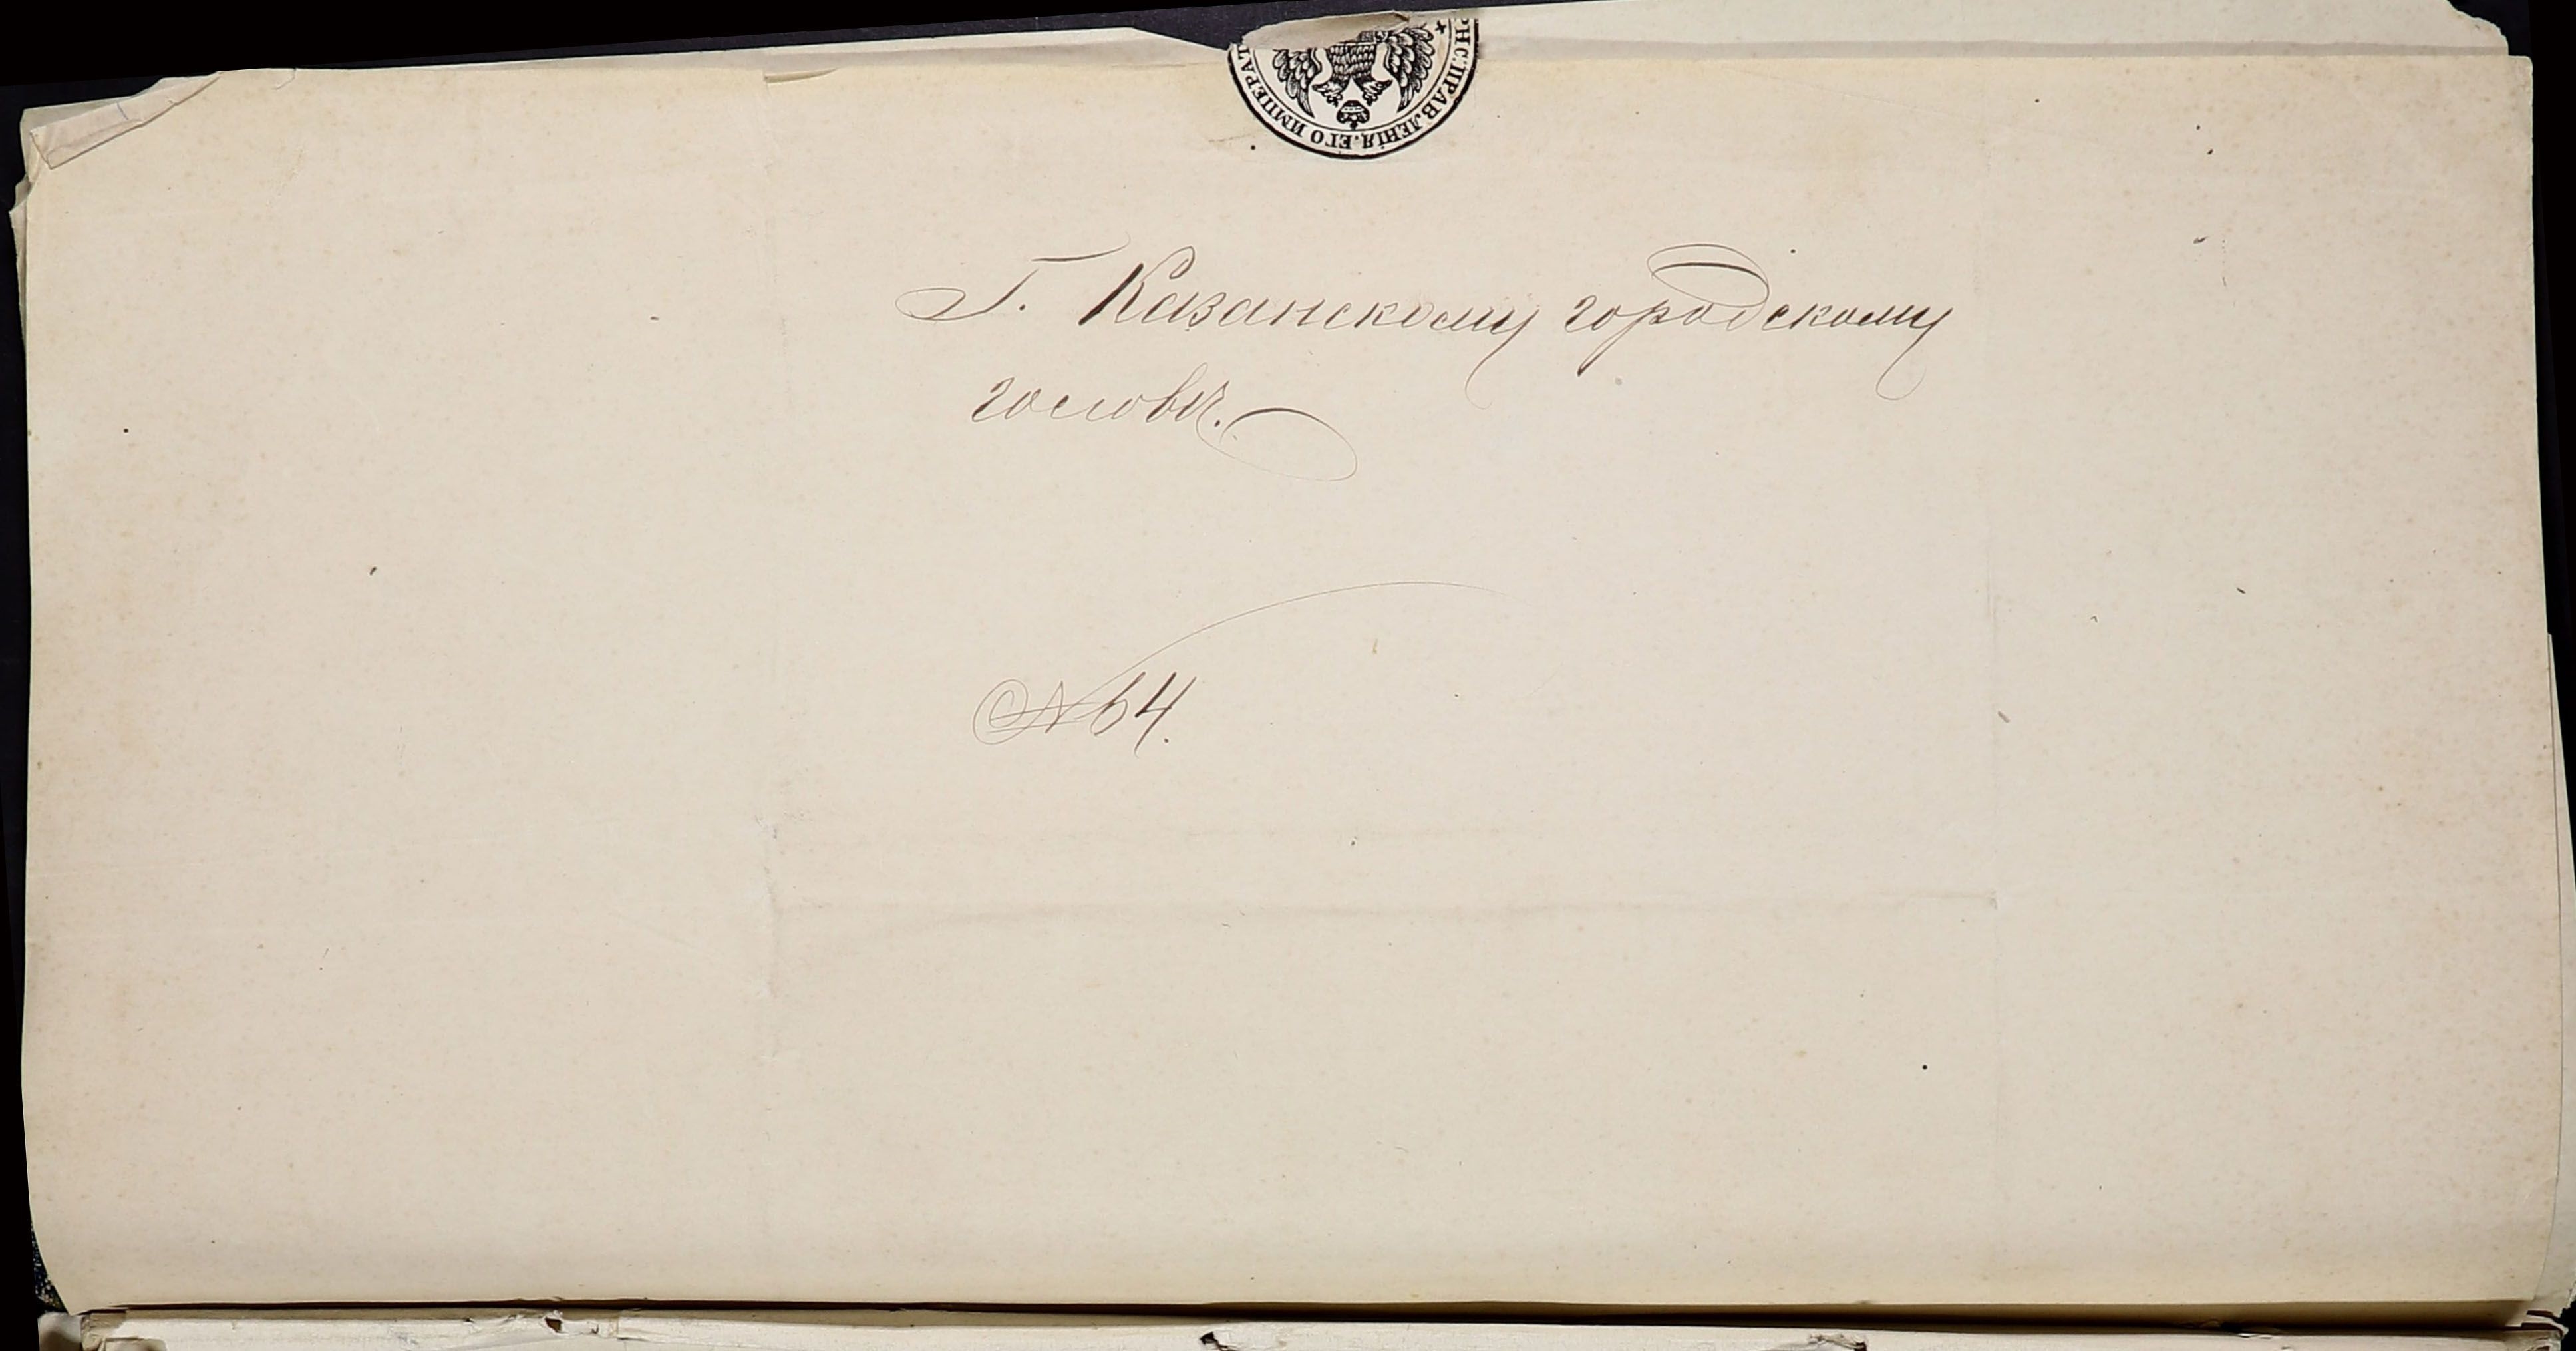 РНС. ПРАВЛЕНІЯ. ЕГО ИМПЕРАТ
Г. Казанскому городскому
головѣ.
№ 64.